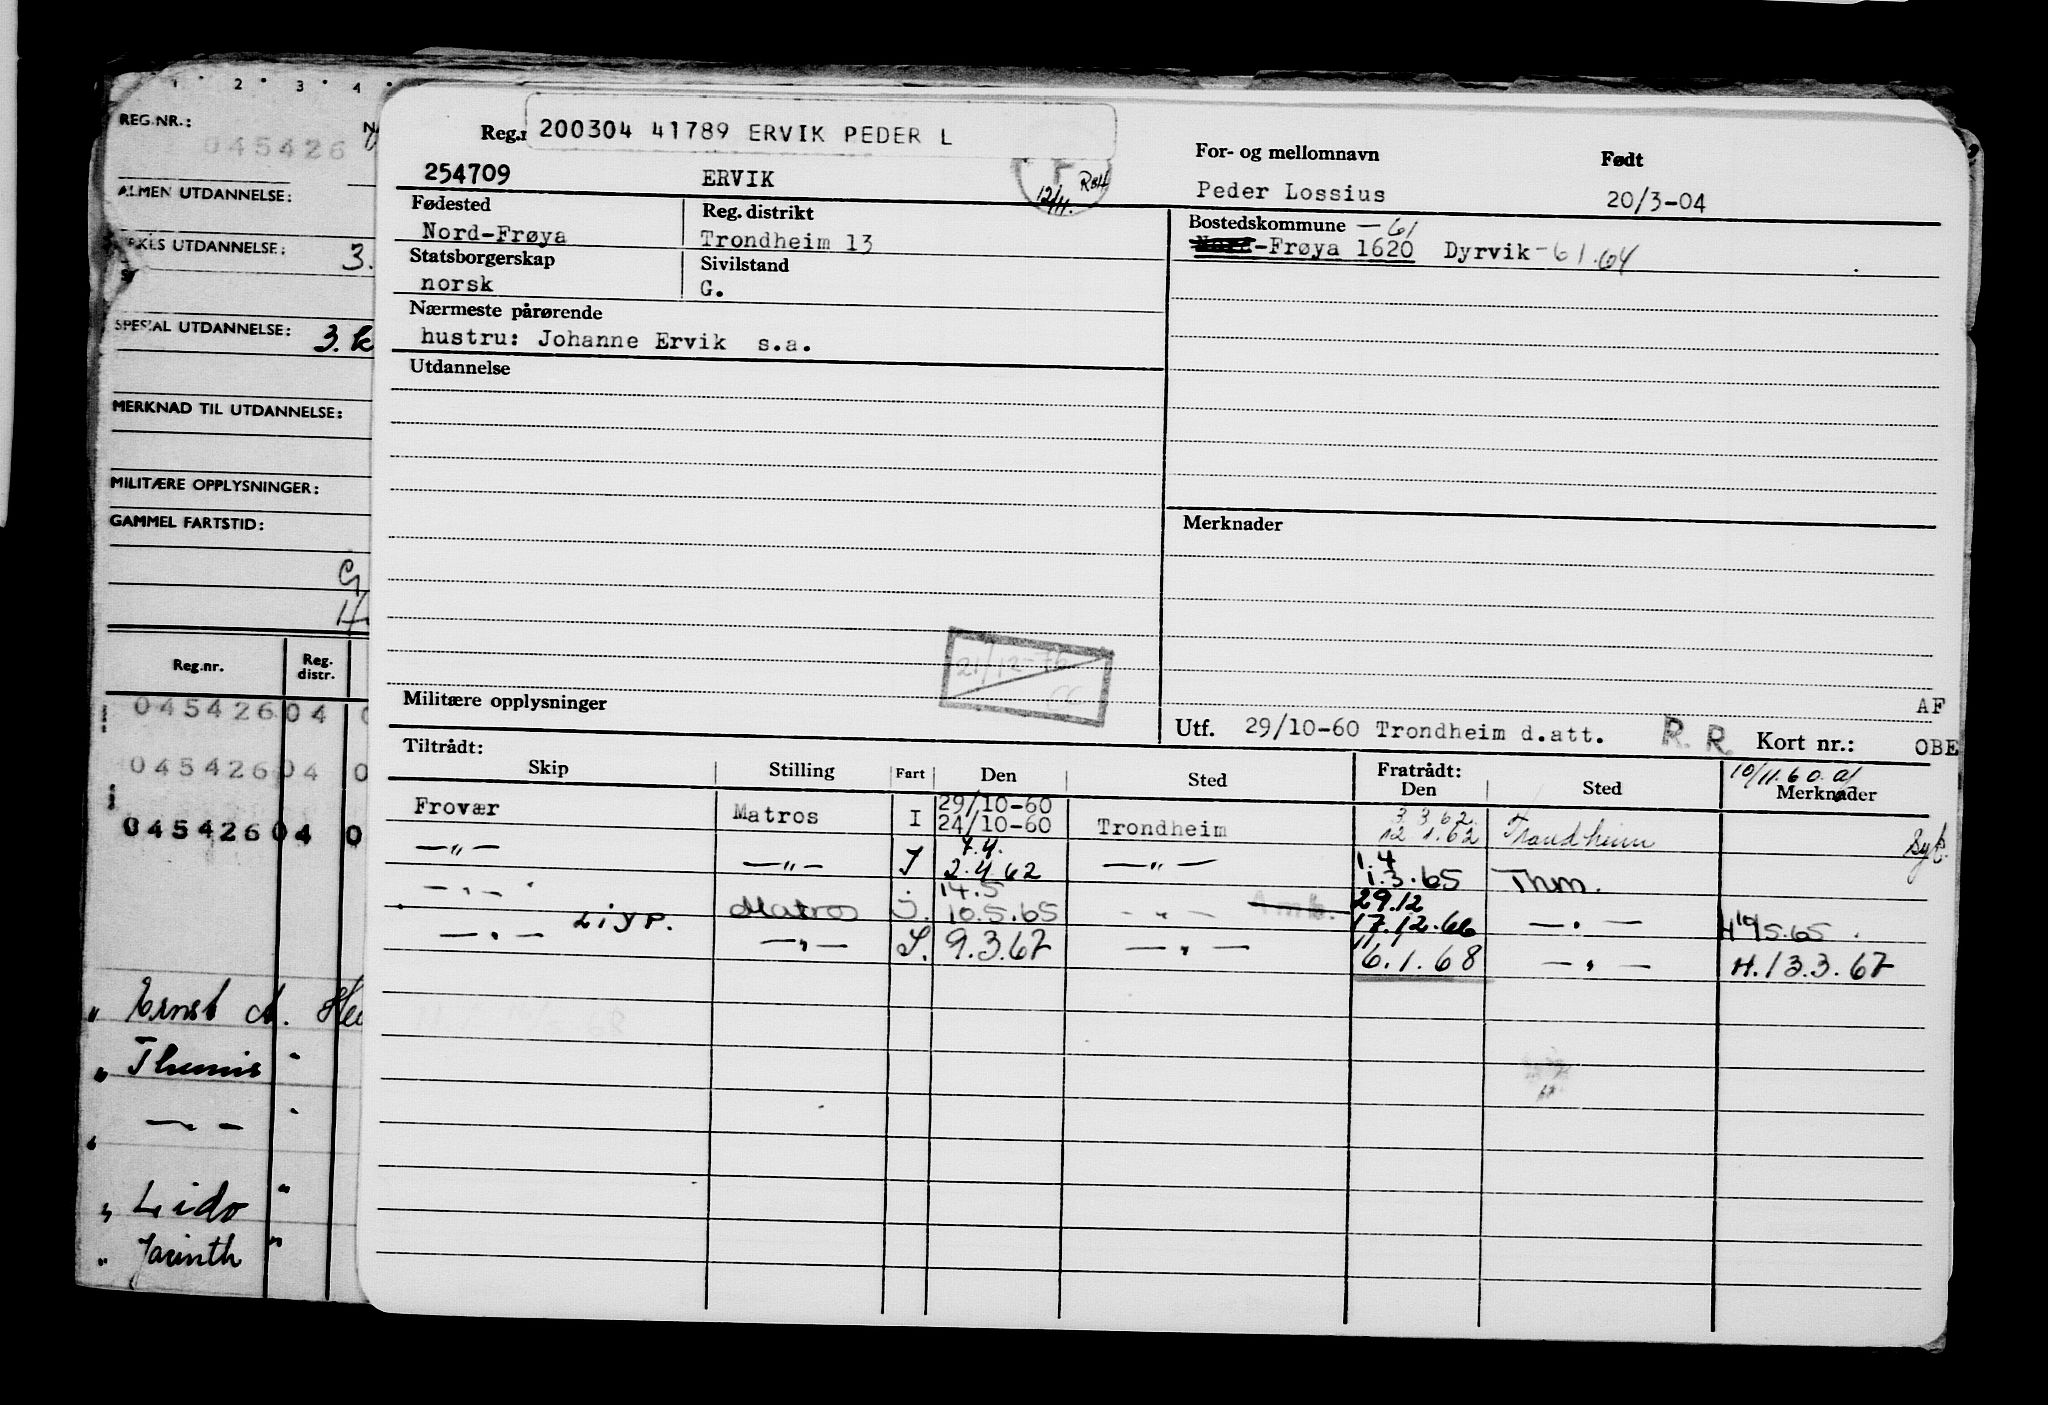 1 2 3 4
REG.NR.:
045426
ALMEN UTDANNELSE:
UTDANNELSE: 3.
SPESIAL UTDANNELSE: 3. k
MERKNAD TIL UTDANNELSE:
MILITÆRE OPPLYSNINGER:
GAMMEL FARTSTID:
G
Reg.nr. Reg. distr.
045426 04 0
045426 04 0
045426 04 0
" Ernst A. He
" Themis "
" — " — "
" Lido "
" Jarinth "
200304 41789 ERVIK PEDER L
254709 ERVIK
12/11.
For- og mellomnavn Født
Peder Lossius 20/3-04
Fødested Reg. distrikt
Nord-Frøya Trondheim 13
Bostedskommune — 61
Nord-Frøya 1620 Dyrvik - 61.64
Statsborgerskap Sivilstand
norsk G.
Nærmeste pårørende
hustru: Johanne Ervik s.a.
Utdannelse
Merknader
21/12-76
Militære opplysninger
AF
Utf. 29/10-60 Trondheim d.att. R. R. Kort nr.: OBE
Tiltrådt: Fratrådt: 10/11.60.
Skip Stilling Fart Den Sted Den Sted Merknader
Frovær Matros I 29/10-60 24/10-60 Trondheim 3.3.62. 12.1.62 Trondheim
— " — — " — I 7.4. 2.4.62 — " — 1.4 1.3.65 Thm.
— " — Matros 14.5 10.5.65 — " — 29.12 17.12.66 — " — 5.65
— " — — " — I. 9.3.67 — " — 11/1 6.1.68 — " — H. 13.3.67